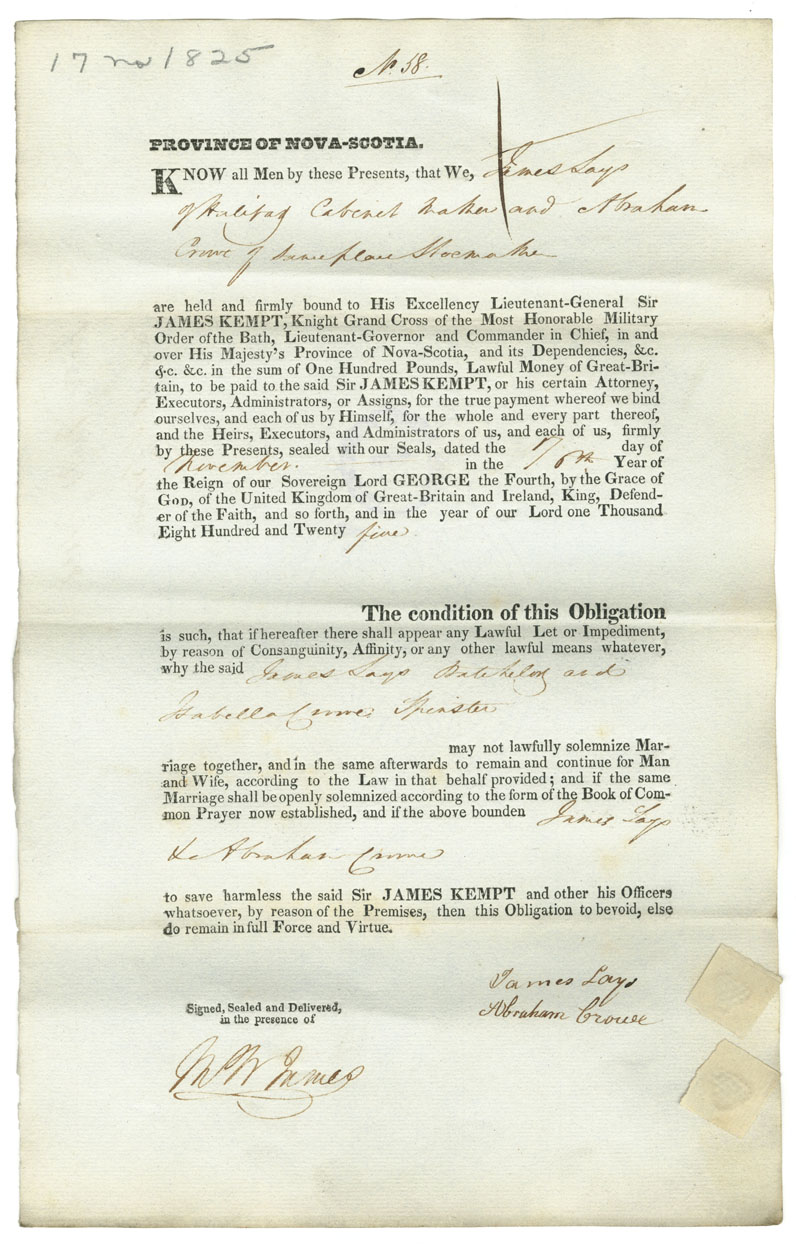 17 No 1825
No. 58.
PROVINCE OF NOVA-SCOTIA.
KNOW all Men by these Presents, that We, James Lays
of Halifax Cabinet Maker and Abraham
Crowe of same place Shoemaker
are held and firmly bound to His Excellency Lieutenant-General Sir
JAMES KEMPT, Knight Grand Cross of the Most Honorable Military
Order of the Bath, Lieutenant-Governor and Commander in Chief, in and
over His Majesty's Province of Nova-Scotia, and its Dependencies, &c.
&c. &c. in the sum of One Hundred Pounds, Lawful Money of Great-Bri-
tain, to be paid to the said Sir JAMES KEMPT, or his certain Attorney,
Executors, Administrators, or Assigns, for the true payment whereof we bind
ourselves, and each of us by Himself, for the whole and every part thereof,
and the Heirs, Executors, and Administrators of us, and each of us, firmly
by these Presents, sealed with our Seals, dated the 17 day of
November. in the 6th Year of
the Reign of our Sovereign Lord GEORGE the Fourth, by the Grace of
GOD, of the United Kingdom of Great-Britain and Ireland, King, Defend-
er of the Faith, and so forth, and in the year of our Lord one Thousand
Eight Hundred and Twenty five
The condition of this Obligation
is such, that if hereafter there shall appear any Lawful Let or Impediment,
by reason of Consanguinity, Affinity, or any other lawful means whatever,
why the said James Lays Batchelor and
Isabella Crowe Spinster
may not lawfully solemnize Mar-
riage together, and in the same afterwards to remain and continue for Man
and Wife, according to the Law in that behalf provided; and if the same
Marriage shall be openly solemnized according to the form of the Book of Com-
mon Prayer now established, and if the above bounden James Lays
& Abraham Crowe
to save harmless the said Sir JAMES KEMPT and other his Officers
whatsoever, by reason of the Premises, then this Obligation to bevoid, else
do remain in full Force and Virtue.
James Lays
Abraham Crowe
Signed, Sealed and Delivered,
in the presence of
James